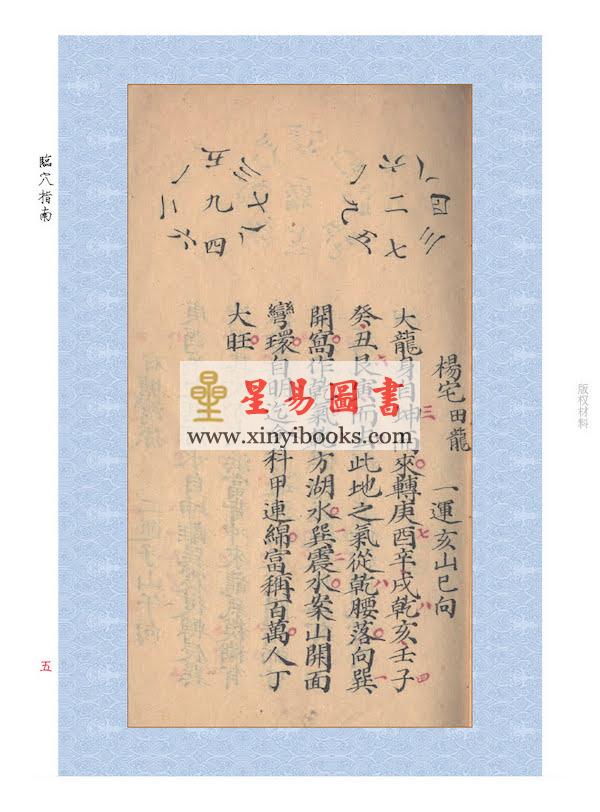 臨穴指南
五
版权材料
楊宅田龍 一運亥山巳向
大龍身自坤 來轉庚酉辛戌乾亥壬子
癸丑艮寅而 此地之氣從乾腰落向巽
開窩作乾氣 方湖水巽震水案山開面
彎環自明迄 科甲連綿富稱百萬人丁
大旺
三 七 八 四
六 八 一
一 二
六 八 四
一 二 三
九 七
五 一 二
三 九 六
七 八 四
星易圖書
www.xinyibooks.com